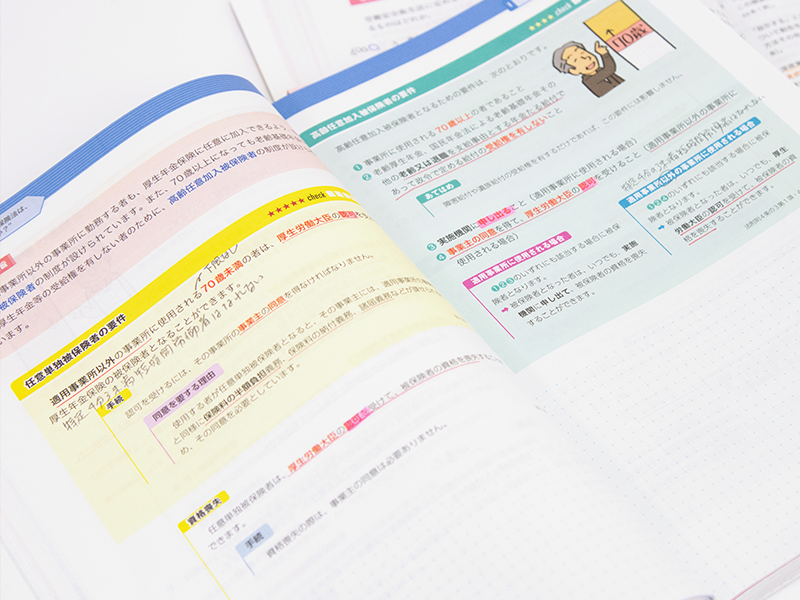 事業所以外の事業所に勤務する者も、厚生年金保険に任意に加入できるよう、
被保険者の制度が設けられています。また、70歳以上になっても老齢基礎
厚生年金等の受給権を有しない者のために、高齢任意加入被保険者の制度が設け
います。
任意単独被保険者の要件
★★★★★ check
下限なし
適用事業所以外の事業所に使用される70歳未満の者は、厚生労働大臣の認可を
厚生年金保険の被保険者となることができます。
特定4分3未満短時間労働者はなれない
手続
認可を受けるには、その事業所の事業主の同意を得なければなりません。
同意を要する理由
使用する者が任意単独被保険者となると、その事業主には、適用事業所
と同様に保険料の半額負担義務、保険料の納付義務、諸届義務などが課せ
め、その同意を必要としています。
資格喪失
任意単独被保険者は、厚生労働大臣の認可を受けて、被保険者の資格を喪失する
できます。
手続
資格喪失の際は、事業主の同意は必要ありません。
高齢任意加入被保険者の要件
★★★★ check
70歳
高齢任意加入被保険者となるための要件は、次のとおりです。
❶ 事業所に使用される70歳以上の者であること
❷ 老齢厚生年金、国民年金法による老齢基礎年金その
他の老齢又は退職を支給事由とする年金たる給付で
あって政令で定める給付の受給権を有しないこと
あてはめ
障害給付や遺族給付の受給権を有するだけであれば、この要件には影響しません。
❸ 実施機関に申し出ること(適用事業所に使用される場合)
❹ 事業主の同意を得て、厚生労働大臣の認可を受けること(適用事業所以外の事業所に
使用される場合)
適用事業所に使用される場合
❶❷❸のいずれにも該当する場合に被保
険者となります。
➡ 被保険者となった者は、いつでも、実施
機関に申し出て、被保険者の資格を喪失
することができます。
適用事業所以外の事業所に使用される場合
❶❷❹のいずれにも該当する場合に被保
険者となります。
➡ 被保険者となった者は、いつでも、厚生
労働大臣の認可を受けて、被保険者の資
格を喪失することができます。